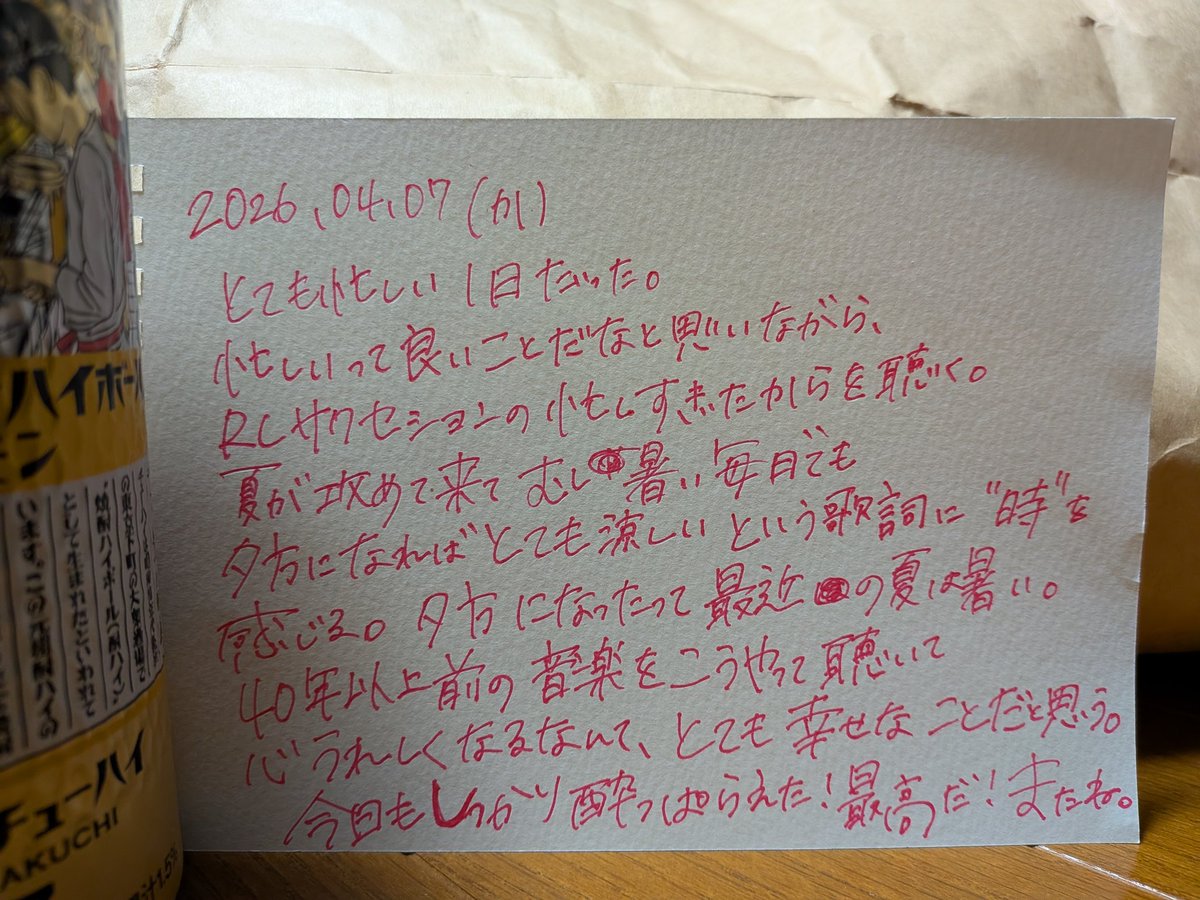 2026.04.07(火)
とても忙しい1日だった。
忙しいって良いことだなと思いながら、
RCサクセションの忙しすぎたからを聴く。
夏が攻めて来てむし暑い毎日でも
夕方になればとても涼しいという歌詞に"時"を
感じる。夕方になったって最近の夏は暑い。
40年以上前の音楽をこうやって聴いて
心うれしくなるなんて、とても幸せなことだと思う。
今日もしっかり酔っぱらえた!最高だ!またね。
ハイボール
の東京下町の大衆酒場で
"焼酎ハイボール〈酎ハイ〉"
として生まれたといわれて
います。この"元祖酎ハイ"の
チューハイ
AKUCHI
汁1.5%